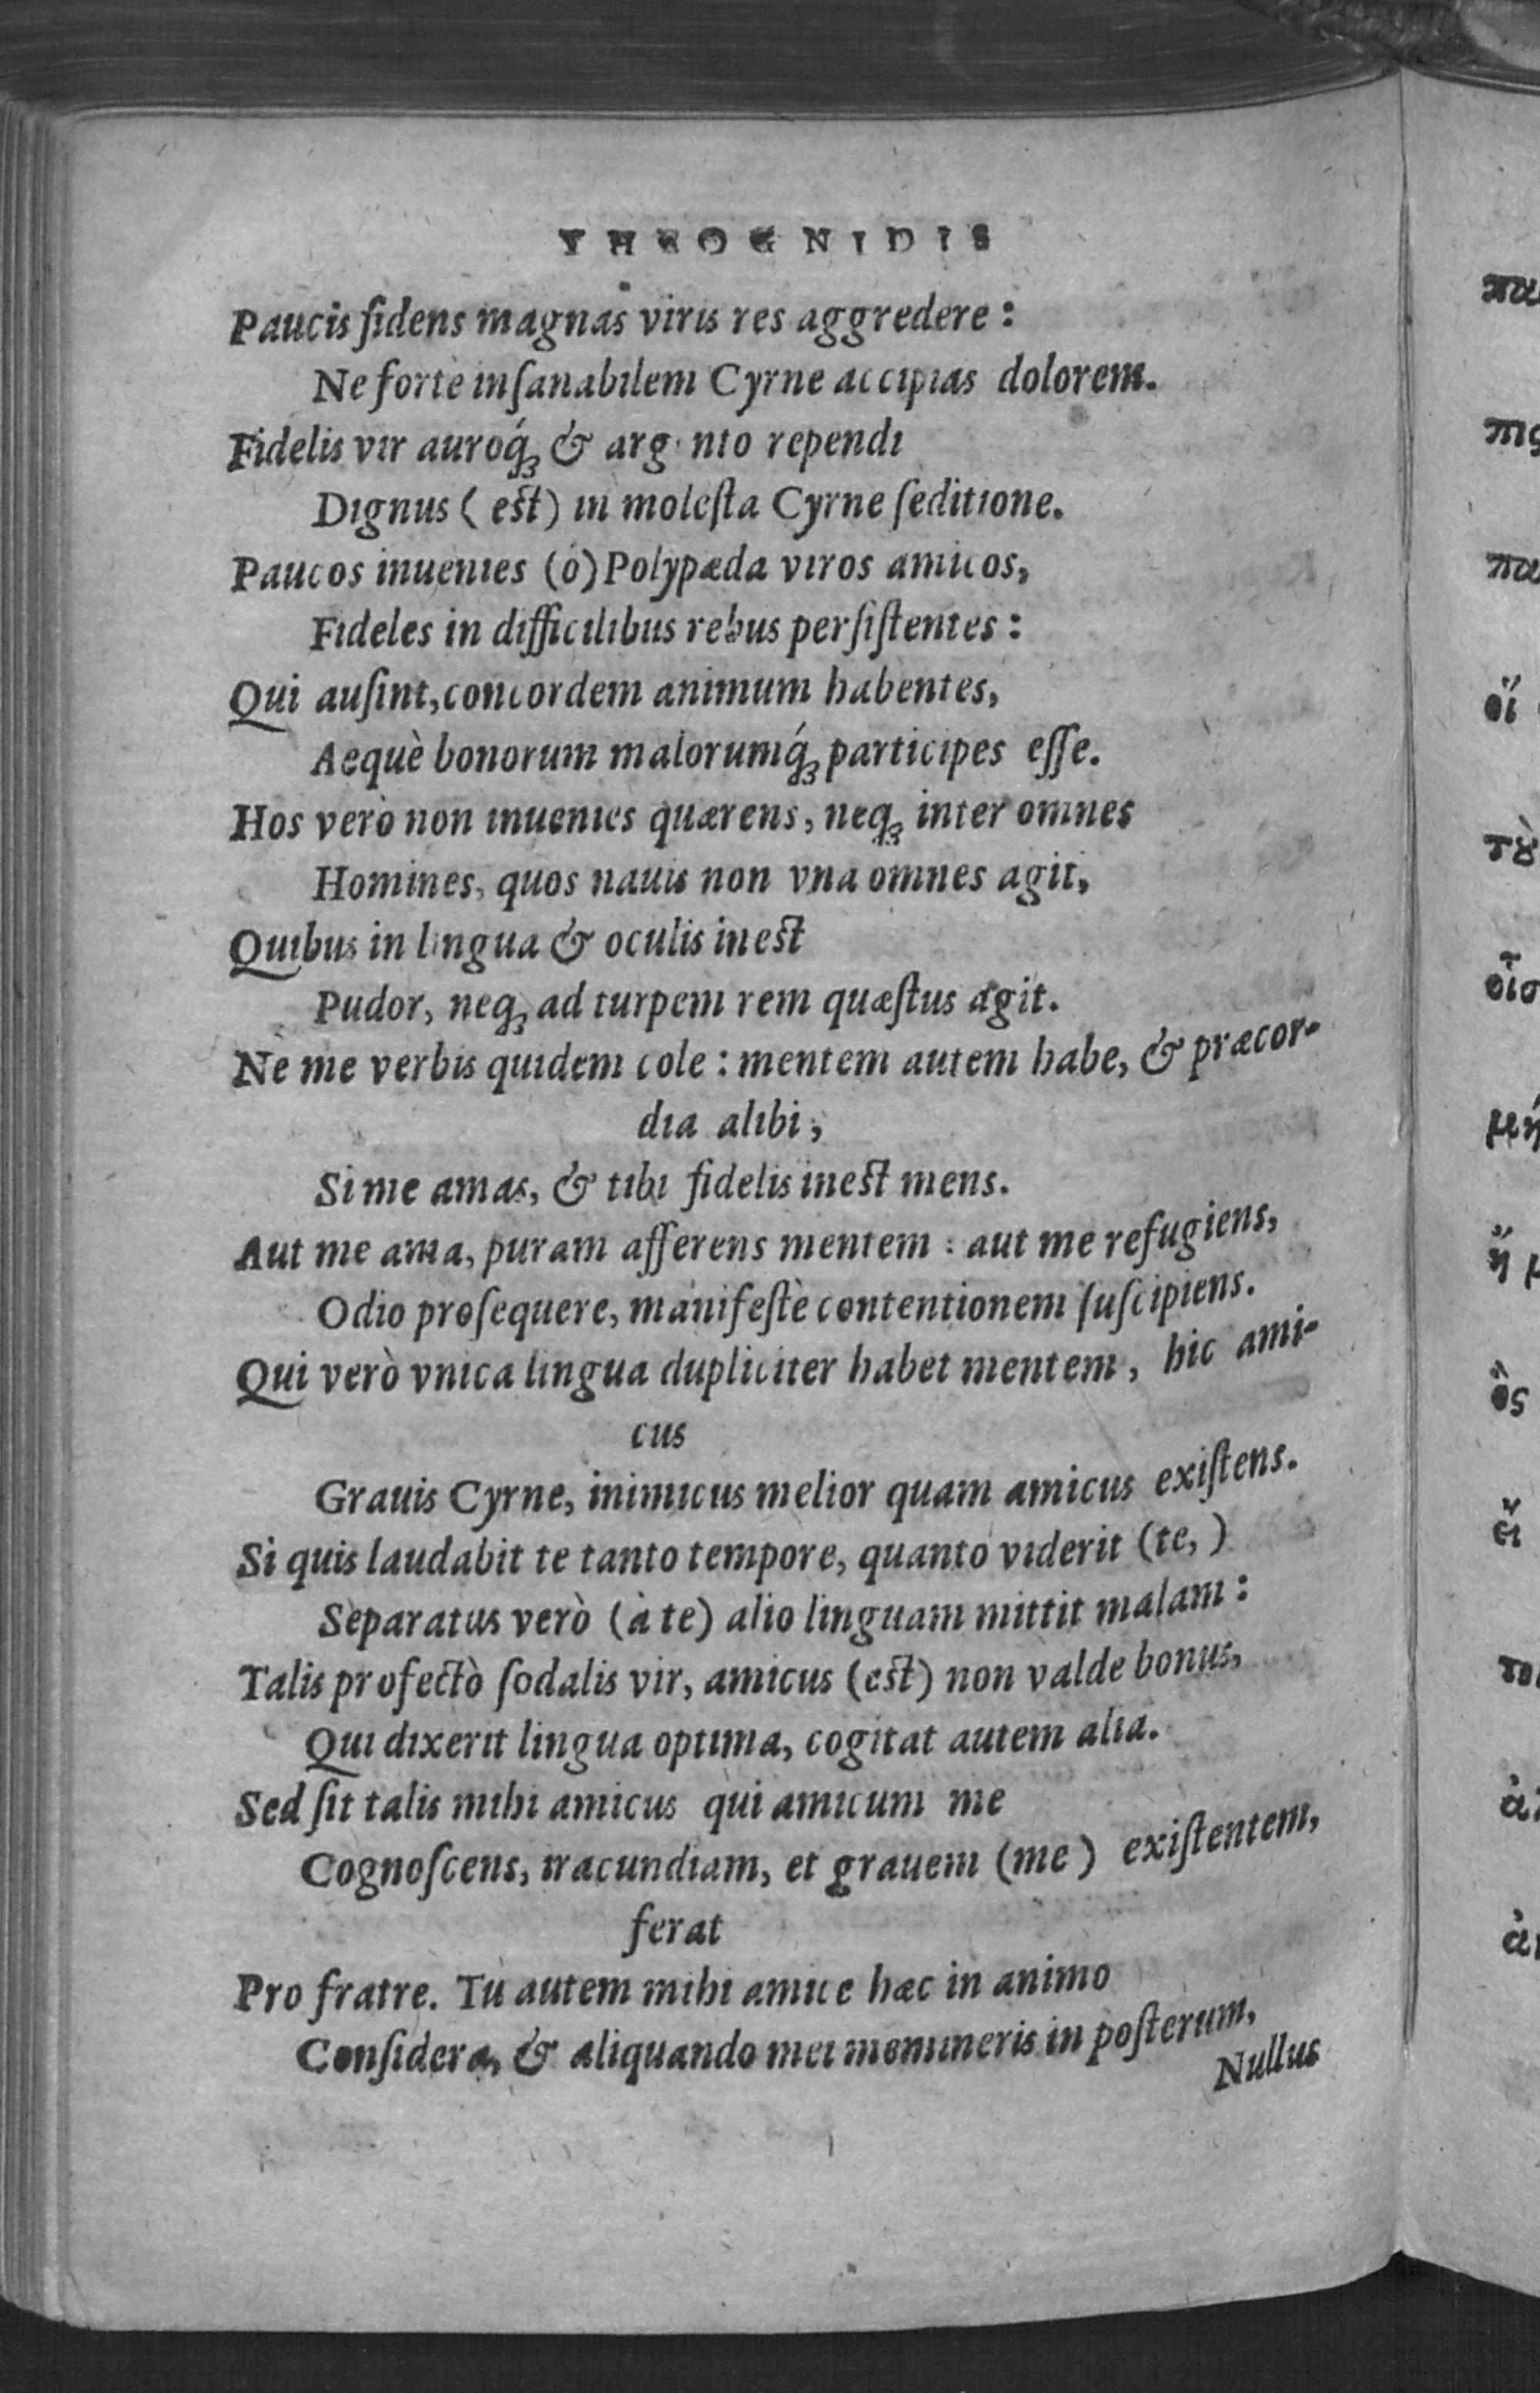 THEOGNIDIS
Paucis fidens magnas viris res aggredere:
Ne forte inſanabilem Cyrne accipias dolorem.
Fidelis vir auroq́ꝫ & arg nto rependi
Dignus (est) in moleſta Cyrne ſeditione.
Paucos inuenies (ó) Polypæda viros amicos,
Fideles in difficilibus rebus perſiſtentes:
Qui auſint, concordem animum habentes,
Aequè bonorum malorumq́ꝫ participes eſſe.
Hos verò non inuenies quærens, neqꝫ inter omnes
Homines, quos nauis non vna omnes agit,
Quibus in lingua & oculis inest
Pudor, neqꝫ ad turpem rem quæſtus agit.
Ne me verbis quidem cole: mentem autem habe, & præcor-
dia alibi,
Si me amas, & tibi fidelis inest mens.
Aut me ama, puram afferens mentem: aut me refugiens,
Odio proſequere, manifeſtè contentionem ſuſcipiens.
Qui verò vnica lingua dupliciter habet mentem, hic ami-
cus
Grauis Cyrne, inimicus melior quam amicus exiſtens.
Si quis laudabit te tanto tempore, quanto viderit (te,)
Separatus verò (à te) alio linguam mittit malam:
Talis profectò ſodalis vir, amicus (est) non valde bonus,
Qui dixerit lingua optima, cogitat autem alia.
Sed ſit talis mihi amicus qui amicum me
Cognoſcens, iracundiam, et grauem (me) exiſtentem,
ferat
Pro fratre. Tu autem mihi amice hæc in animo
Conſidera, & aliquando mei memineris in poſterum,
Nullus